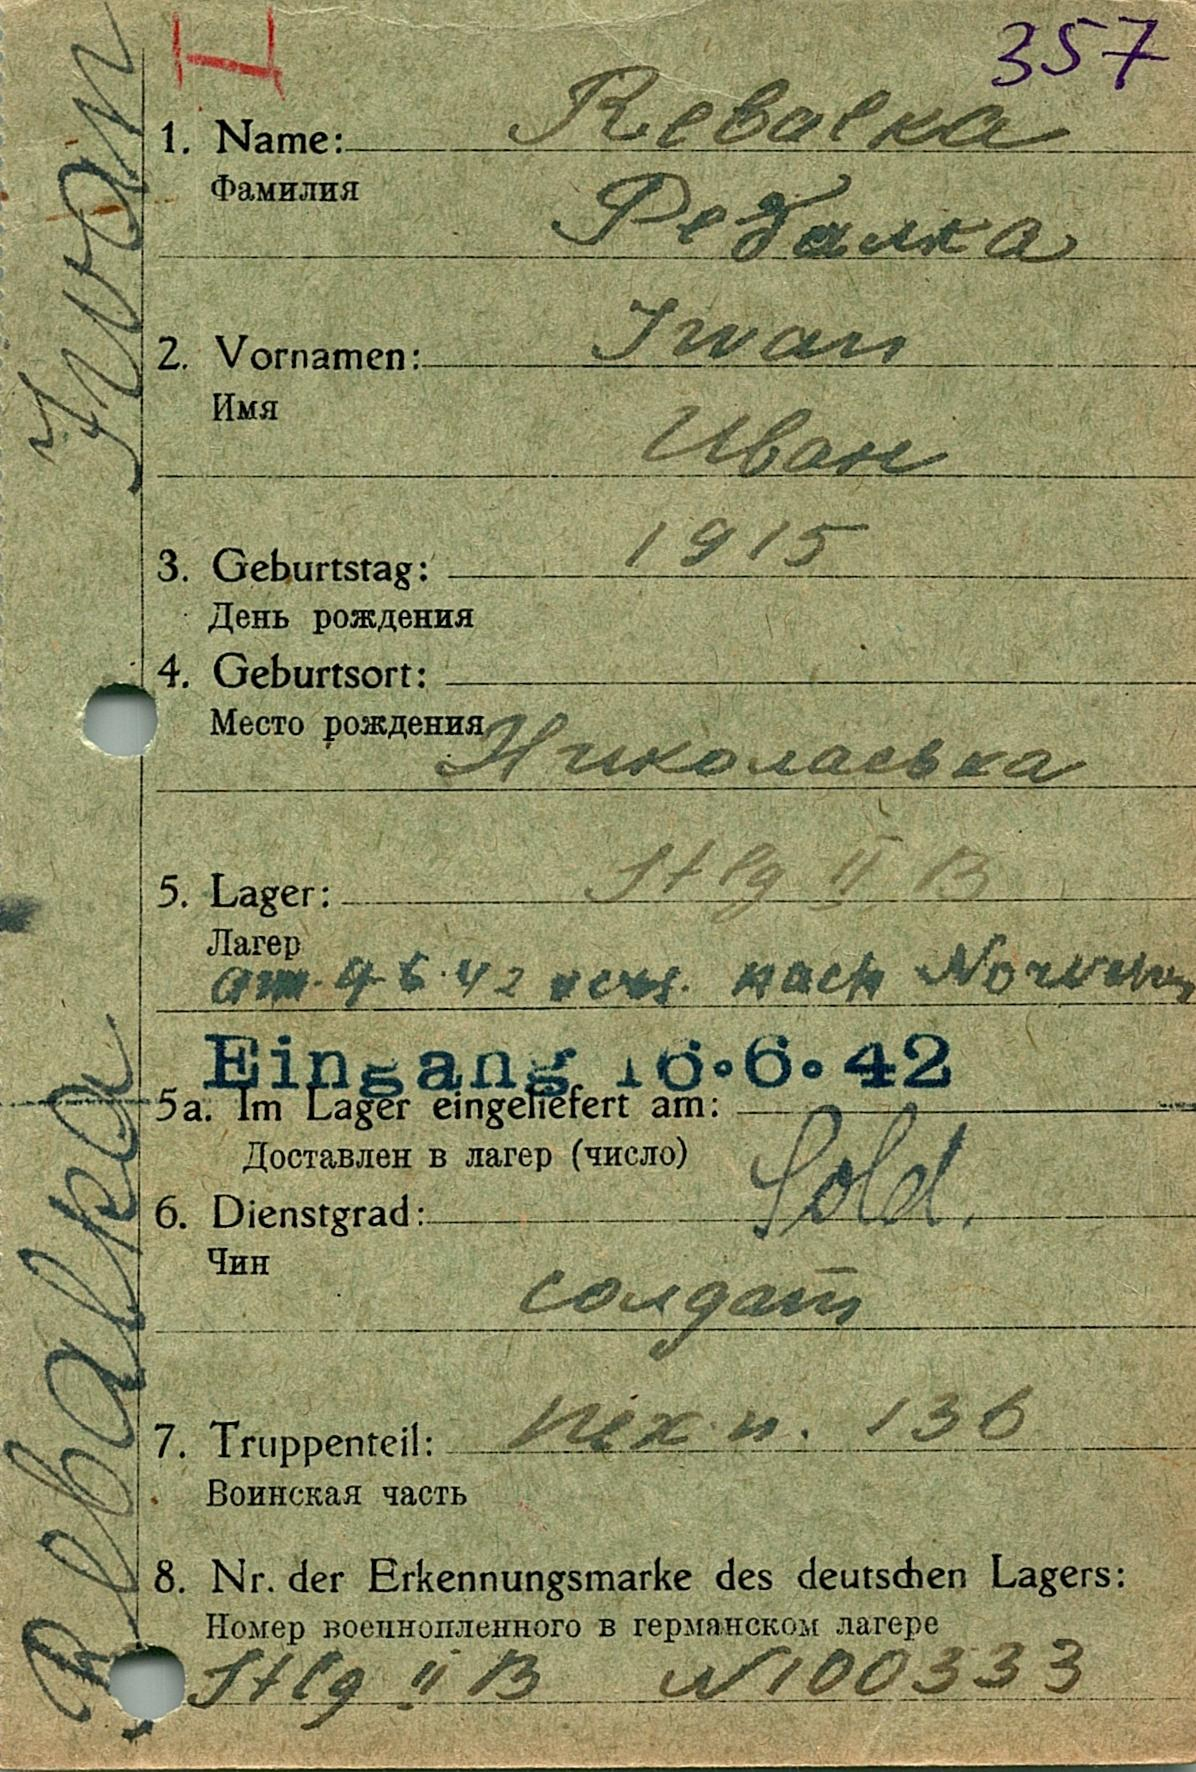 357
I
1. Name: Rebalka
Фамилия
Ребалка
2. Vornamen: Iwan
Имя
Иван
3. Geburtstag: 1915
День рождения
4. Geburtsort:
Место рождения
Николаевка
5. Lager: Stlg II B
Лагер
am 9.6.42 vers. nach Norwegen
Eingang 16.6.42
5a. Im Lager eingeliefert am:
Доставлен в лагер (число)
6. Dienstgrad: Sold.
Чин
солдат
7. Truppenteil: пех. п. 136
Воинская часть
8. Nr. der Erkennungsmarke des deutschen Lagers:
Номер военнопленного в германском лагере
Stlg II B N 100333
Rebalka Iwan